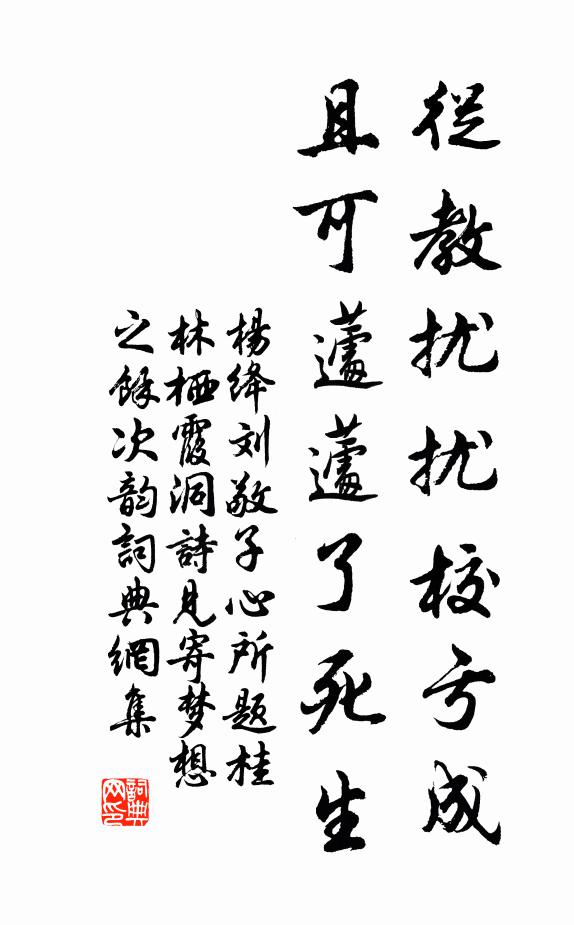 從教扰扰校亏成
且可蘧蘧了死生
楊绛刘敬子心所题桂
林栖霞洞詩見寄梦想
之餘次韵詞典網集
詞典网印